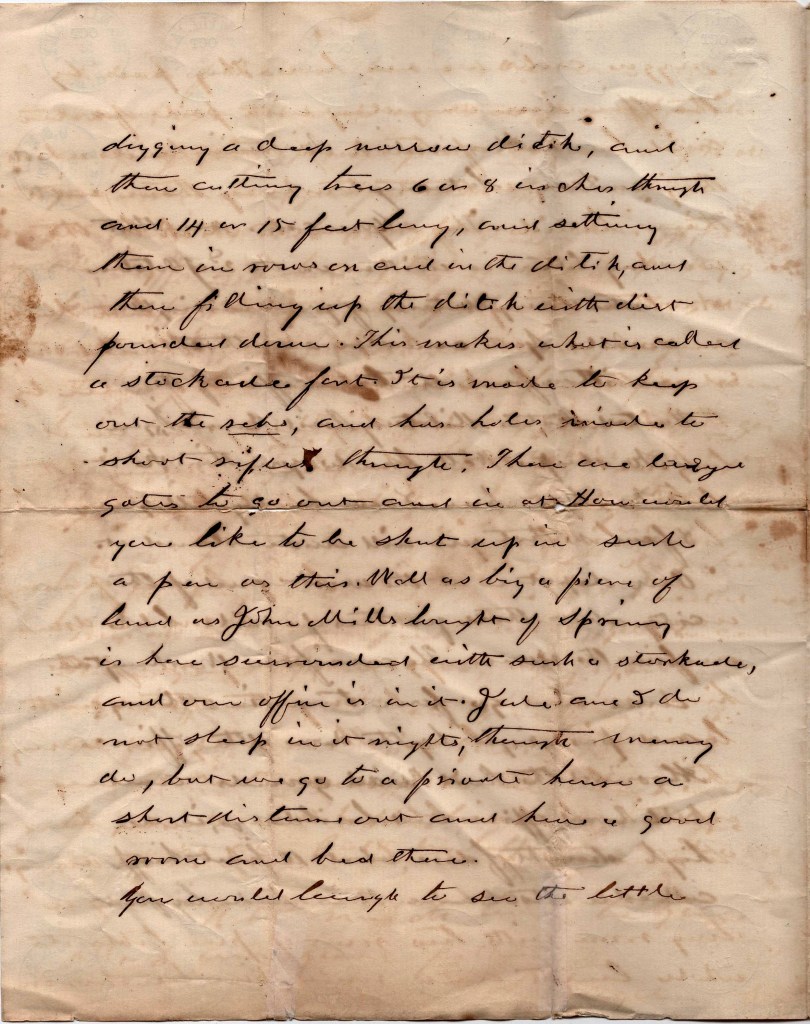 digging a deep narrow ditch, and
then cutting trees 6 or 8 inches through
and 14 or 15 feet long, and setting
them in rows on end in the ditch, and
then filling up the ditch with dirt
pounded down. This makes what is called
a stockade fort. It is made to keep
out the rebs, and has holes made to
shoot rifles through. There are large
gates to go out and in at. How would
you like to be shut up in such
a pen as this. Well as big a piece of
land as John Mills bought of Spring
is here surrounded with such a stockade,
and our office is in it. and I do
not sleep in it nights, though many
do, but we go to a private house a
short distance out and have a good
room and bed there.
You would laugh to see the little